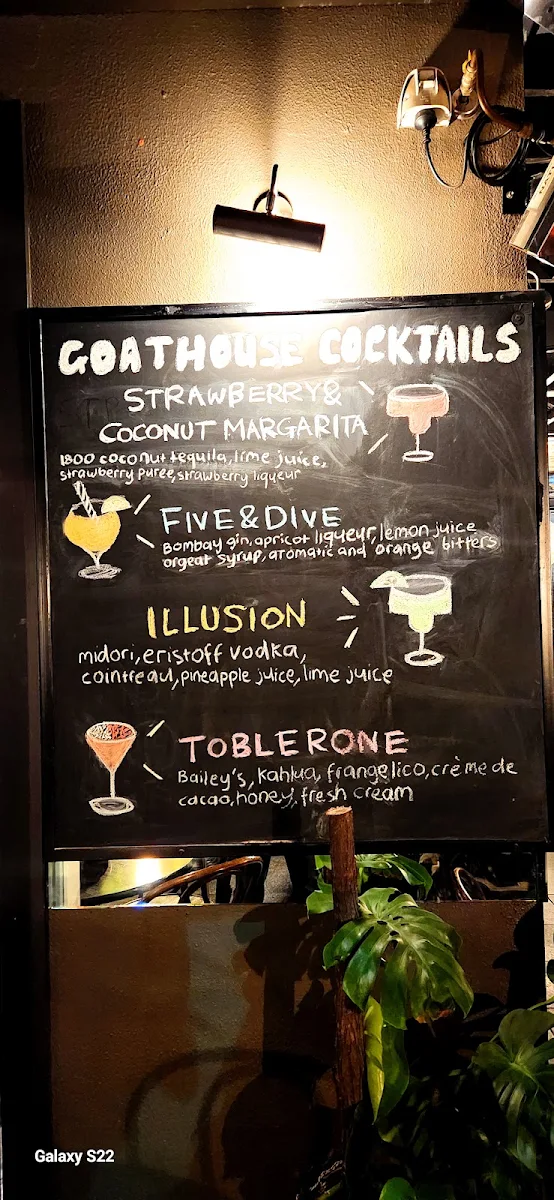 GOATHOUSE COCKTAILS
STRAWBERRY &
COCONUT MARGARITA
1800 coconut tequila, lime juice,
strawberry puree, strawberry liqueur
FIVE & DIVE
Bombay gin, apricot liqueur, lemon juice
orgeat syrup, aromatic and orange bitters
ILLUSION
midori, eristoff vodka,
cointreau, pineapple juice, lime juice
TOBLERONE
Bailey's, kahlua, frangelico, crème de
cacao, honey, fresh cream
Galaxy S22